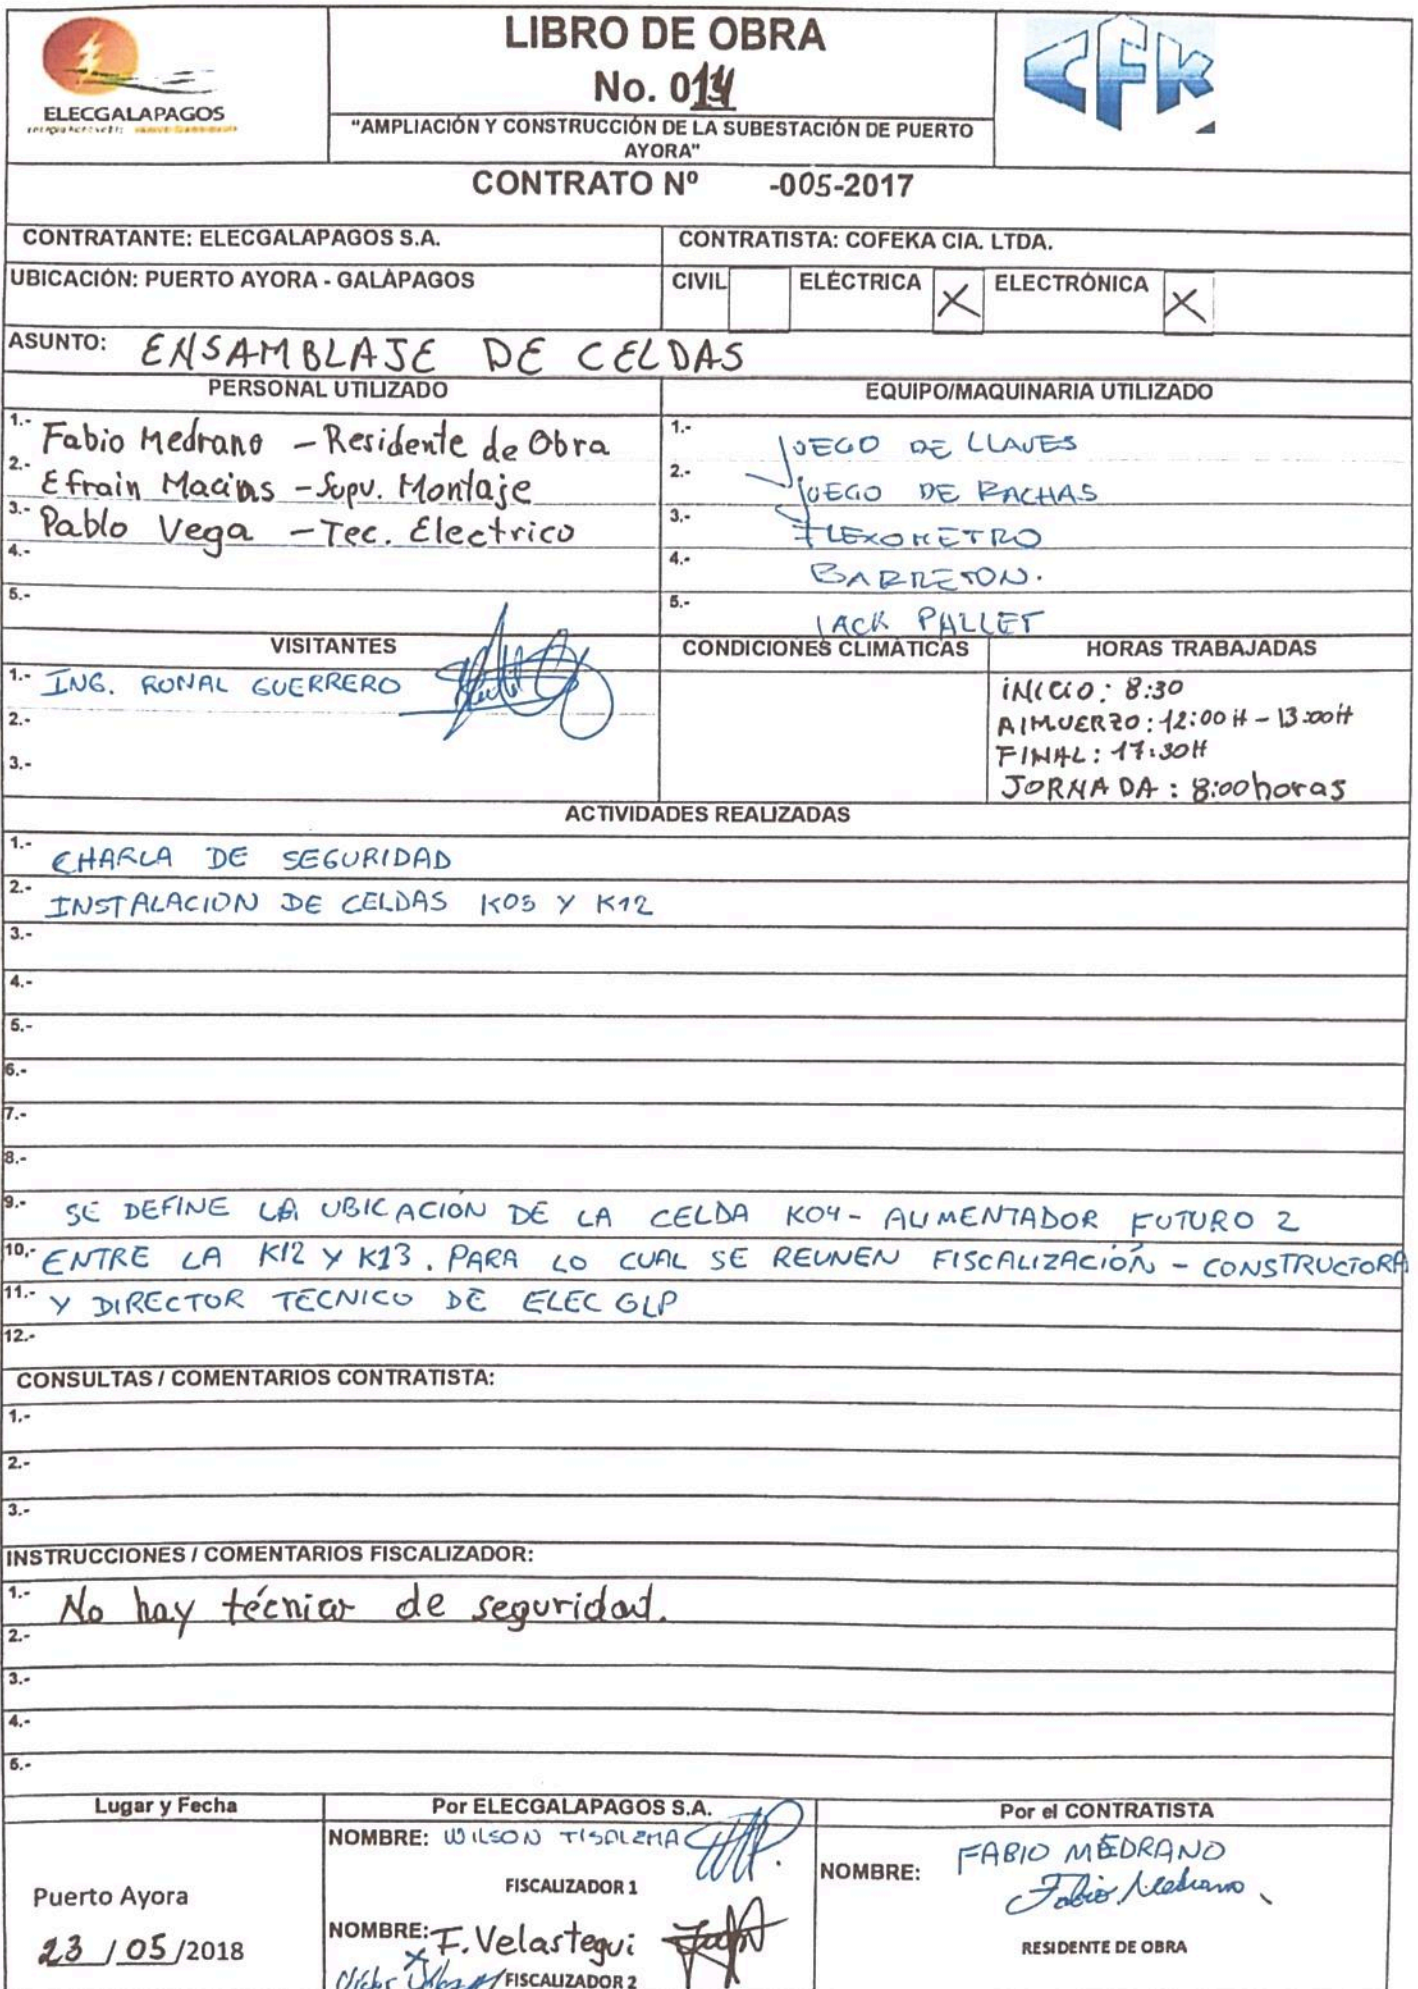 LIBRO DE OBRA
No. 014
ELECGALAPAGOS
"AMPLIACIÓN Y CONSTRUCCIÓN DE LA SUBESTACIÓN DE PUERTO
AYORA"
CFK
CONTRATO Nº -005-2017
CONTRATANTE: ELECGALAPAGOS S.A. CONTRATISTA: COFEKA CIA. LTDA.
UBICACIÓN: PUERTO AYORA - GALÁPAGOS CIVIL ELÉCTRICA X ELECTRÓNICA X
ASUNTO: ENSAMBLAJE DE CELDAS
PERSONAL UTILIZADO EQUIPO/MAQUINARIA UTILIZADO
1.- Fabio Medrano - Residente de Obra
2.- Efrain Macias - Supv. Montaje
3.- Pablo Vega - Tec. Electrico
4.-
5.-
1.- JUEGO DE LLAVES
2.- JUEGO DE RACHAS
3.- FLEXOMETRO
4.- BARRETON.
5.- JACK PALLET
VISITANTES CONDICIONES CLIMÁTICAS HORAS TRABAJADAS
1.- ING. RONAL GUERRERO
2.-
3.-
INICIO: 8:30
AlMUERZO: 12:00H - 13:00H
FINAL: 17:30H
JORNADA: 8:00 horas
ACTIVIDADES REALIZADAS
1.- CHARLA DE SEGURIDAD
2.- INSTALACION DE CELDAS K05 Y K12
3.-
4.-
5.-
6.-
7.-
8.-
9.- SE DEFINE LA UBICACIÓN DE LA CELDA K04 - ALIMENTADOR FUTURO 2
10.- ENTRE LA K12 Y K13. PARA LO CUAL SE REUNEN FISCALIZACIÓN - CONSTRUCTORA
11.- Y DIRECTOR TECNICO DE ELEC GLP
12.-
CONSULTAS / COMENTARIOS CONTRATISTA:
1.-
2.-
3.-
INSTRUCCIONES / COMENTARIOS FISCALIZADOR:
1.- No hay técnico de seguridad.
2.-
3.-
4.-
5.-
Lugar y Fecha Por ELECGALAPAGOS S.A. Por el CONTRATISTA
NOMBRE: WILSON TISALEMA
FISCALIZADOR 1
NOMBRE: FABIO MEDRANO
Fabio Medrano
Puerto Ayora
23 / 05 /2018
NOMBRE: F. Velastegui
FISCALIZADOR 2
RESIDENTE DE OBRA